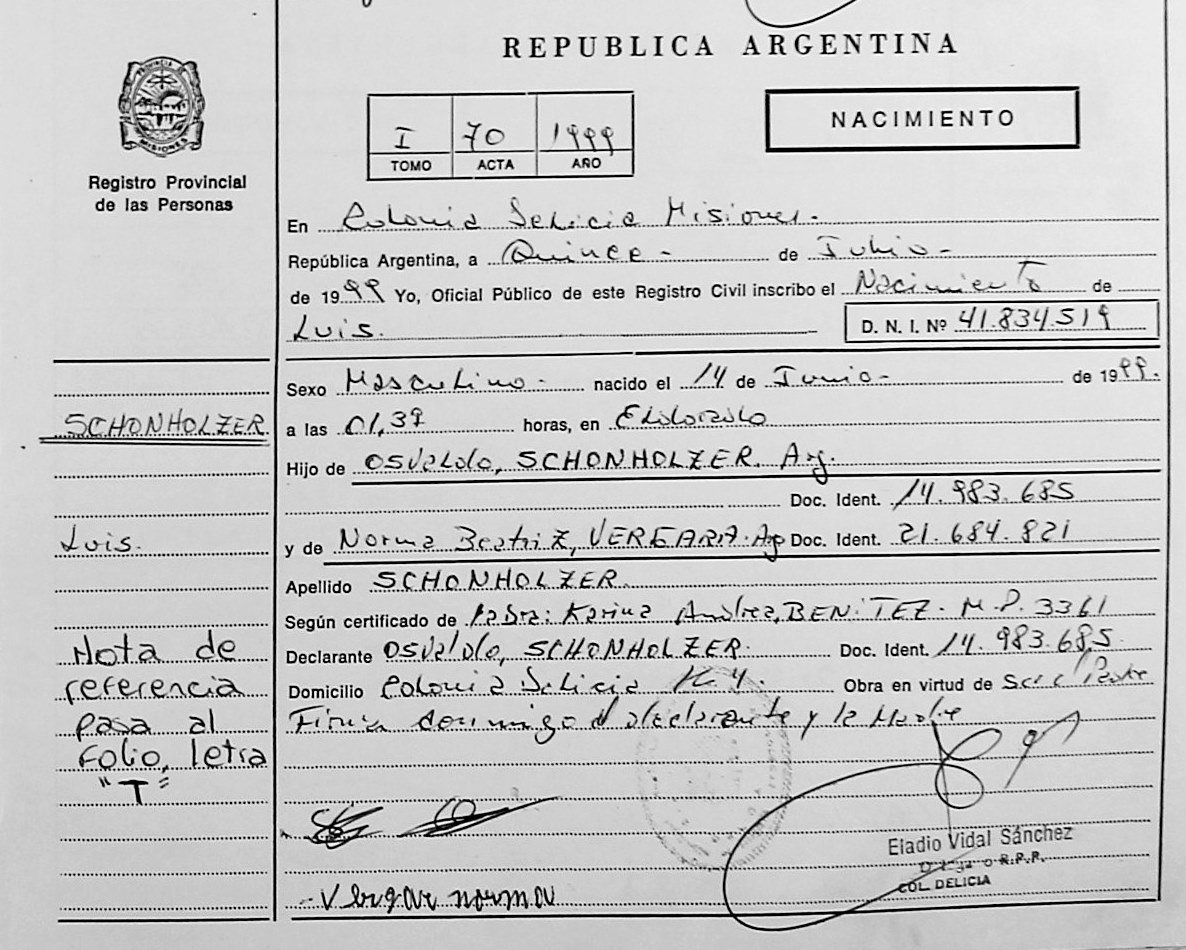 REPUBLICA ARGENTINA
PROVINCIA DE
MISIONES
Registro Provincial
de las Personas
I 70 1999
TOMO ACTA AÑO
NACIMIENTO
En Colonia Delicia Misiones.-
República Argentina, a Quince - de Julio -
de 1999 Yo, Oficial Público de este Registro Civil inscribo el Nacimiento de
Luis. D. N. I. Nº 41.834.519
Sexo Masculino - nacido el 14 de Junio - de 1999.
SCHONHOLZER
a las 01,39 horas, en Eldorado
Hijo de Osvaldo, SCHONHOLZER. Arg.
Doc. Ident. 14.983.685
Luis.
y de Norma Beatriz, VERGARA. Arg Doc. Ident. 21.684.821
Apellido SCHONHOLZER
Según certificado de Karina Andrea, BENITEZ. M.P. 3361
Declarante Osvaldo, SCHONHOLZER. Doc. Ident. 14.983.685
Domicilio Colonia Delicia Km 4. Obra en virtud de Ser el Padre
Firma conmigo el declarante y la Madre
Nota de
referencia
pasa al
Folio, letra
"T"
Eladio Vidal Sánchez
R.P.P.
COL. DELICIA
Vergara norma